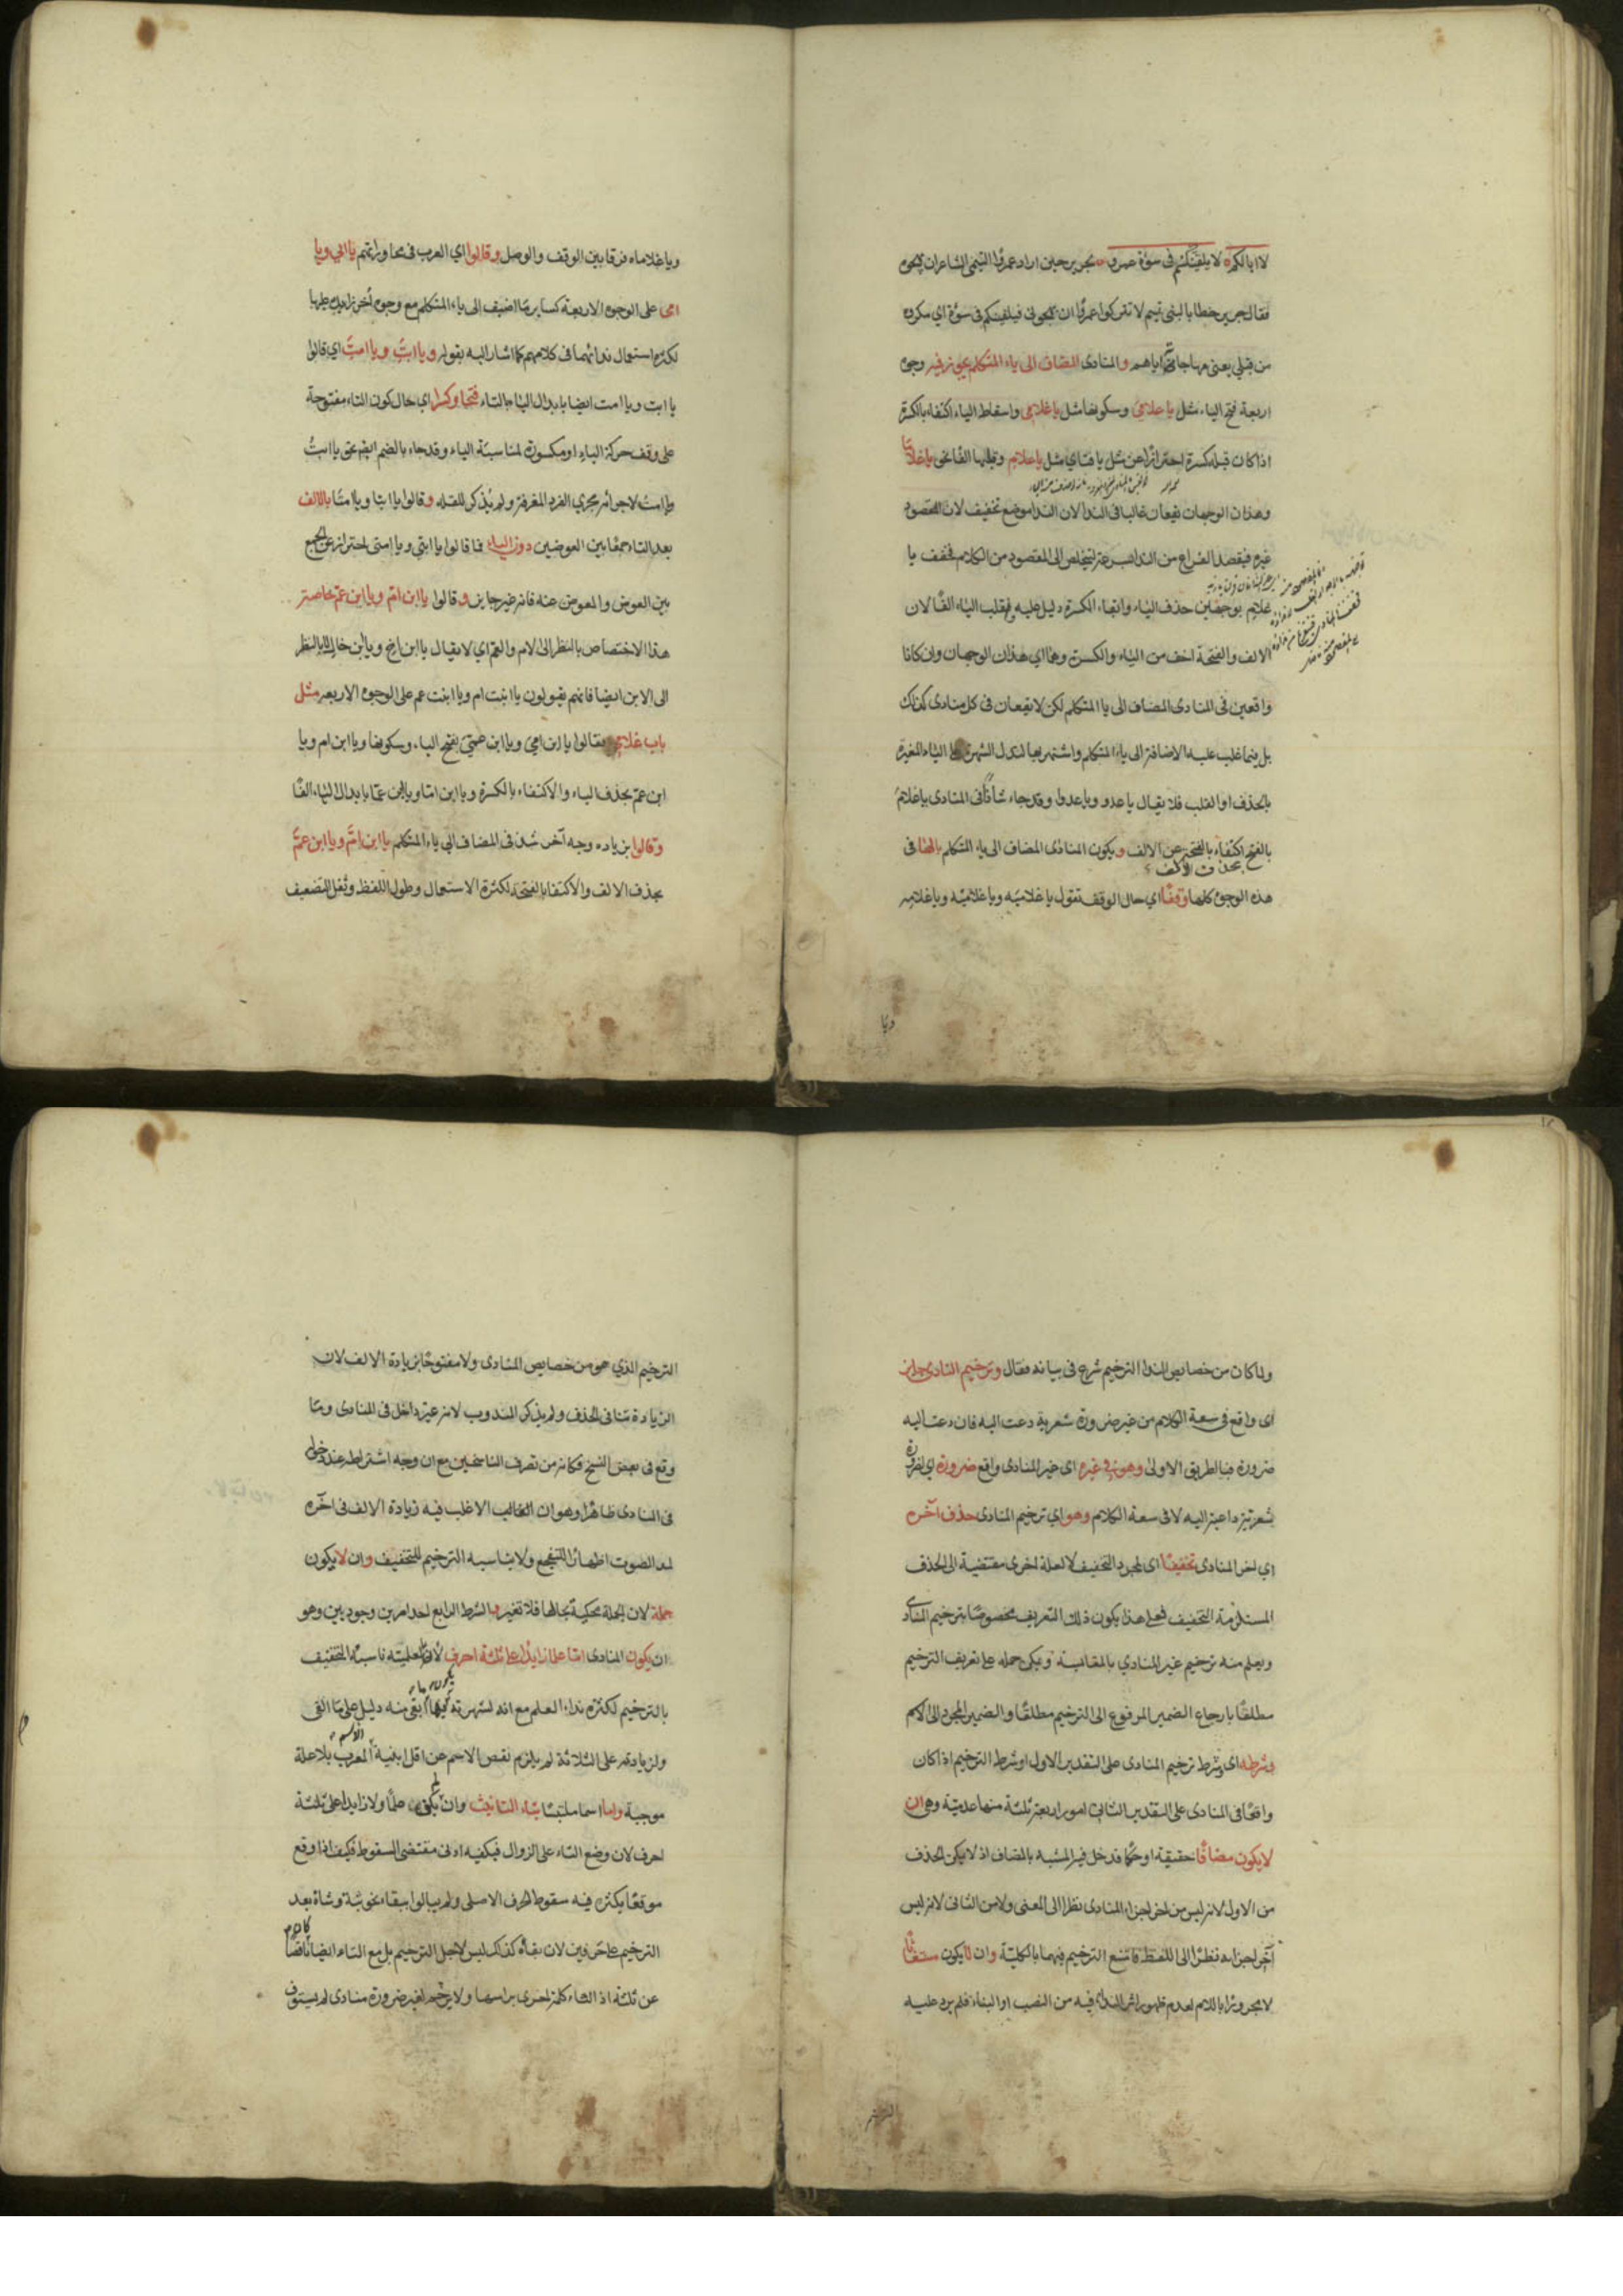 لا ابالكم لا يلقينكم في سوءة عمرو لجرير حين اراد عمرو التيمي الشاعر ان يهجوه
فقال جرير خطابا لبني تيم لا تتركوا عمروا ان يهجوني فيلقينكم في سوءة اي مكروه
من قبلي يعني مهاجاتي اياهم والمنادى المضاف الى ياء المتكلم يجوز فيه وجوه
اربعة فتح الياء مثل يا غلامي وسكونها مثل يا غلامي واسقاط الياء اكتفاء بالكسرة
اذا كان قبله كسرة احترازا عن مثل يا فتاي مثل يا غلام وقلبها الفا نحو يا غلاما
وهذان الوجهان يقعان غالبا في النداء لان النداء موضع تخفيف لان المقصود
غيره فيقصد الفراغ من النداء بسرعة ليتخلص الى المقصود من الكلام فخفف يا
غلامي بوجهين حذف الياء وابقاء الكسرة دليل عليه وقلب الياء الفا لان
الالف والفتحة اخف من الياء والكسرة وهما اي هذان الوجهان وان كانا
واقعين في المنادى المضاف الى يا المتكلم لكن لا يقعان في كل منادى كذلك
بل فيما غلب عليه الاضافة الى ياء المتكلم واشتهر بها لتدل الشهرة على الياء المغيرة
بالحذف او القلب فلا يقال يا عدو ويا عدوا وقد جاء شاذا في المنادى يا غلام
بالفتح اكتفاء بالفتحة عن الالف ويكون المنادى المضاف الى ياء المتكلم بالهاء في
بحذف الالف
هذه الوجوه كلها وقفا اي حال الوقف تقول يا غلاميه ويا غلاميه ويا غلامه
ويا
ويا غلاماه فرقا بين الوقف والوصل وقالوا اي العرب في محاوراتهم يا ابي ويا
امي على الوجوه الاربعة كساير ما اضيف الى ياء المتكلم مع وجوه أخر زايدة عليها
لكثرة استعمال ندائهما في كلامهم كما اشار اليه بقوله ويا ابت ويا امت اي قالوا
يا ابت ويا امت ايضا بابدال الياء بالتاء فتحا وكسرا اي حال كون التاء مفتوحة
على وفق حركة الياء او مكسورة لمناسبة الياء وقد جاء بالضم ايضا نحو يا ابت
ويا امت لاجرائه مجرى المفرد المعرفة ولم يذكر للقلة وقالوا يا ابتا ويا امتا بالالف
بعد التاء جمعا بين العوضين دون الياء فما قالوا يا ابتي ويا امتي احترازا عن الجمع
بين العوض والمعوض عنه فانه غير جايز وقالوا يا ابن ام ويا ابن عم خاصة
هذا الاختصاص بالنظر الى الام والعم اي لا يقال يا ابن اخ ويا ابن خال لا بالنظر
الى الابن ايضا فانهم يقولون يا ابنت ام ويا ابنت عم على الوجوه الاربعة مثل
باب غلامي فقالوا يا ابن امي ويا ابن عمي بفتح الياء وسكونها ويا ابن ام ويا
ابن عم بحذف الياء والاكتفاء بالكسرة ويا ابن اما ويا ابن عما بابدال الياء الفا
وقالوا بزيادة وجه آخر شذ في المضاف الى ياء المتكلم يا ابن ام ويا ابن عم
بحذف الالف والاكتفا بالفتحة لكثرة الاستعمال وطول اللفظ وثقل التضعيف
ولما كان من خصايص النداء الترخيم شرع في بيانه فقال وترخيم المنادى جايز
اى واقع في سعة الكلام من غير ضرورة شعرية دعت اليه فان دعت اليه
ضرورة فبالطريق الاولى وهو في غيره اى غير المنادى واقع ضرورة اي لضرورة
شعرية داعية اليه لا في سعة الكلام وهو اي ترخيم المنادى حذف آخره
اي اخر المنادى تخفيفا اى لمجرد التخفيف لا لعلة اخرى مقتضية الى الحذف
المستلزمة التخفيف فعلى هذا يكون ذلك التعريف مخصوصا بترخيم المنادى
ويعلم منه ترخيم غير المنادي بالمقايسة ويمكن حمله على تعريف الترخيم
مطلقا بارجاع الضمير المرفوع الى الترخيم مطلقا والضمير المجرور الى الاسم
وشرطه اى وشرط ترخيم المنادى على التقدير الاول او شرط الترخيم اذا كان
واقعا في المنادى على التقدير الثاني امور اربعة ثلثة منها عدمية وهي ان
لا يكون مضافا حقيقة او حكما فدخل فيه المشبه بالمضاف اذ لا يمكن الحذف
من الاول لانه ليس من اخر اجزاء المنادى نظرا الى المعنى ولا من الثاني لانه ليس
آخر اجزائه نظرا الى اللفظ فامتنع الترخيم فيهما بالكلية وان لا يكون مستغاثا
لا مجرورا باللام لعدم ظهور اثر النداء فيه من النصب او البناء فلم يرد عليه
الترخيم
الترخيم الذي هو من خصايص المنادى ولا مفتوحا بزيادة الالف لان
الزيادة تنافي الحذف ولم يذكر المندوب لانه غير داخل في المنادى وما
وقع في بعض النسخ فكانه من تصرف الناسخين مع ان وجه اشتراطه عند دخوله
في المنادى ظاهر وهو ان الغالب الاغلب فيه زيادة الالف في آخره
لمد الصوت اظهارا للتفجع ولا يناسبه الترخيم للتخفيف وان لا يكون
جملة لان الجملة محكية بحالها فلا تغير والشرط الرابع احد امرين وجوديين وهو
ان يكون المنادى اما علما زايدا على ثلثة احرف لان العلمية ناسبة التخفيف
بالترخيم لكثرة نداء العلم مع انه لشهرته يكون فيما ابقي منه دليل على ما القي
ولزيادته على الثلاثة لم يلزم نقص الاسم عن اقل ابنية المعرب بلا علة
موجبة واما اسما ملتبسا بتاء التانيث وان لم يكن علما ولا زايدا على ثلثة
احرف لان وضع التاء على الزوال فيكفيه ادنى مقتضى السقوط فكيف اذا وقع
موقعا يكثر فيه سقوط الحرف الاصلي ولم يبالوا ببقاء نحو ثبة وشاة بعد
الترخيم على حرفين لان بقاءه كذلك ليس لاجل الترخيم بل مع التاء ايضا كان ناقصا
عن ثلثة اذ التاء كلمة اخرى براسها ولا يرخم لغير ضرورة منادى لم يستوف